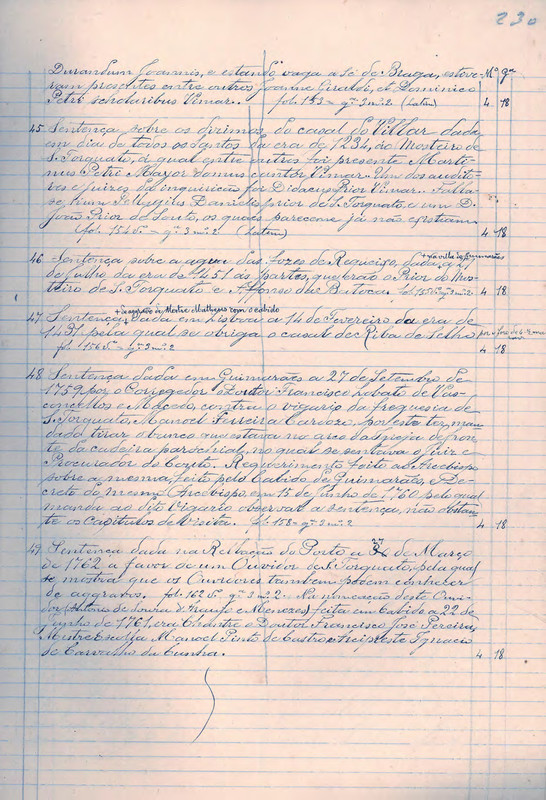 230
Mº gª
Durandum Joannis, e estando vaga a Sé de Braga, estove-
ram proscritas entre outros Joanne Giraldi, et Dominico
Petri scholaribus Vimar. fol. 153 = gª 3 mº 2 (Latim) 4 18
45 Sentença sobre os dizimos do casal do Villar dada
em dia de todos os santos da era de 1234, ao Mosteiro de
S. Torquato, á qual entre outros foi presente Marti-
nus Petri Mayor domus cantor Vimar. Um dos audito-
res e juizes da inquirição foi Didacus Prior Vimar. Falla-
se num Pelagius Danielis prior de S. Tiquato, e um D.
João Prior do Souto, os quaes parecem já não existiam
(fol. 154 vº = gª 3 mº 2 (Latim) 4 18
46 Sentença sobre a agua das fozes de dada a 27
na villa de Guimarães
de Julho da era de 1451 ás partes, que erão o Prior do Mos-
teiro de S. Torquato e Affonso da Batoca. fol. 155 gª 3 mº 2 4 18
de Mestre Matheus com o cabido
47 Sentença, dada em Lisboa a 14 de Fevereiro da era de
14 pela qual se obriga o casal de Riba de Selho
fol. 156 vº = gª 3 mº 2 4 18
48 Sentença dada em Guimarães a 27 de Setembro de
1759 por o Corregedor o Doutor Francisco Lobato de Vas-
concellos e Macedo, contra o vigario da freguesia de
S. Torquato, Manoel Ferreira Cardozo, por este ter man-
dado tirar o banco que estava no arco da igreja de fron-
te da cadeira parochial, no qual se sentava o Juiz e
Procurador do Couto. Requerimento feito ao Arcebispo
sobre a mesma, feito pelo Cabido de Guimarães, e De-
creto do mesmo Arcebispo em 15 de Junho de 1760 pelo qual
manda ao dito Vigario observar a sentença, não obstan-
te os capitulos de visita. fol. 158 = gª 3 mº 2 4 18
49 Sentença dada na Relação do Porto a de Março
de 1762 a favor de um Ouvidor de S. Torquato, pela qual
se mostra que os Ouvidores tambem podem conhecer
de aggravos. fol. 162 vº gª 3 mº 2 = Na nomeação deste Ouvi-
dor (Antonio de Souza d'Araujo e Menezes) feita em Cabido a 22 de
Junho de 1761, era Chantre o Doutor Francisco José Pereira,
Mestre Escola Manoel Pinto de Castro, Arcipreste Ignacio
de Carvalho da Cunha. 4 18